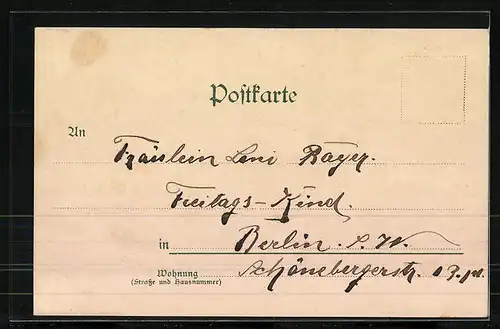 Postkarte
An
Fräulein Leni Bayer.
Freitags-Kind.
in Berlin. S.W.
Wohnung Schönebergerstr. 13.
(Straße und Hausnummer)